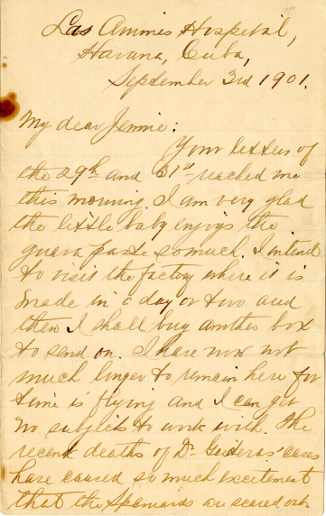 Las Animas Hospital,
Havana, Cuba,
September 3rd 1901.
My dear Jennie:
Your letters of
the 29th and 31st reached me
this morning. I am very glad
the little baby enjoys the
guava paste so much. I intend
to visit the factory where it is
made in a day or two and
then I shall buy another box
to send on. I have now not
much longer to remain here for
time is flying and I can get
no subjects to work with. The
recent deaths of Dr Guiteras' cases
have caused so much excitement
that the Spaniards are scared out